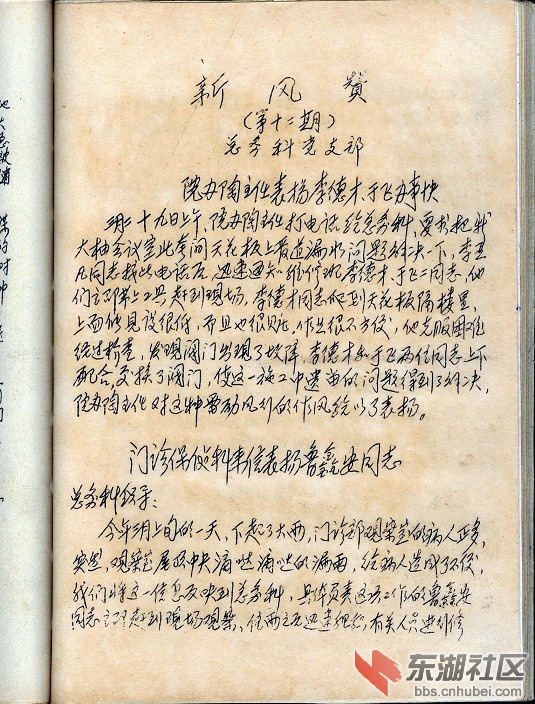 新风赞
(第十二期)
总务科党支部
院办陶主任表扬李德才、于飞办事快
三月二十九日上午,院办陶主任打电话给总务科,要求把我
大楼会议室北旁间天花板上管道漏水问题解决一下,李
凡同志接此电话后,迅速通知维修班李德才、于飞二同志,他
们立即带上工具赶到现场,李德才同志爬到天花板隔楼里,
上面的设很低,而且也很脏,作业很不方便,他克服困难
经过检查,发现阀门出现了故障,李德才和于飞两位同志上下
配合,更换了阀门,使这一施工中遗留的问题得到了解决,
院办陶主任对这种雷厉风行的作风给以了表扬。
门诊保健科来信表扬鲁鑫安同志
总务科领导:
今年三月上旬的一天,下起了大雨,门诊部观察室的病人正多,
突然,观察室屋顶中央滴哒滴哒的漏雨,给病人造成了不便,
我们将这一信息反映到总务科,具体负责这项工作的鲁鑫安
同志立即赶到现场观察,在雨立后迅速组织有关人员进行修
东湖社区
bbs.cnhubei.com